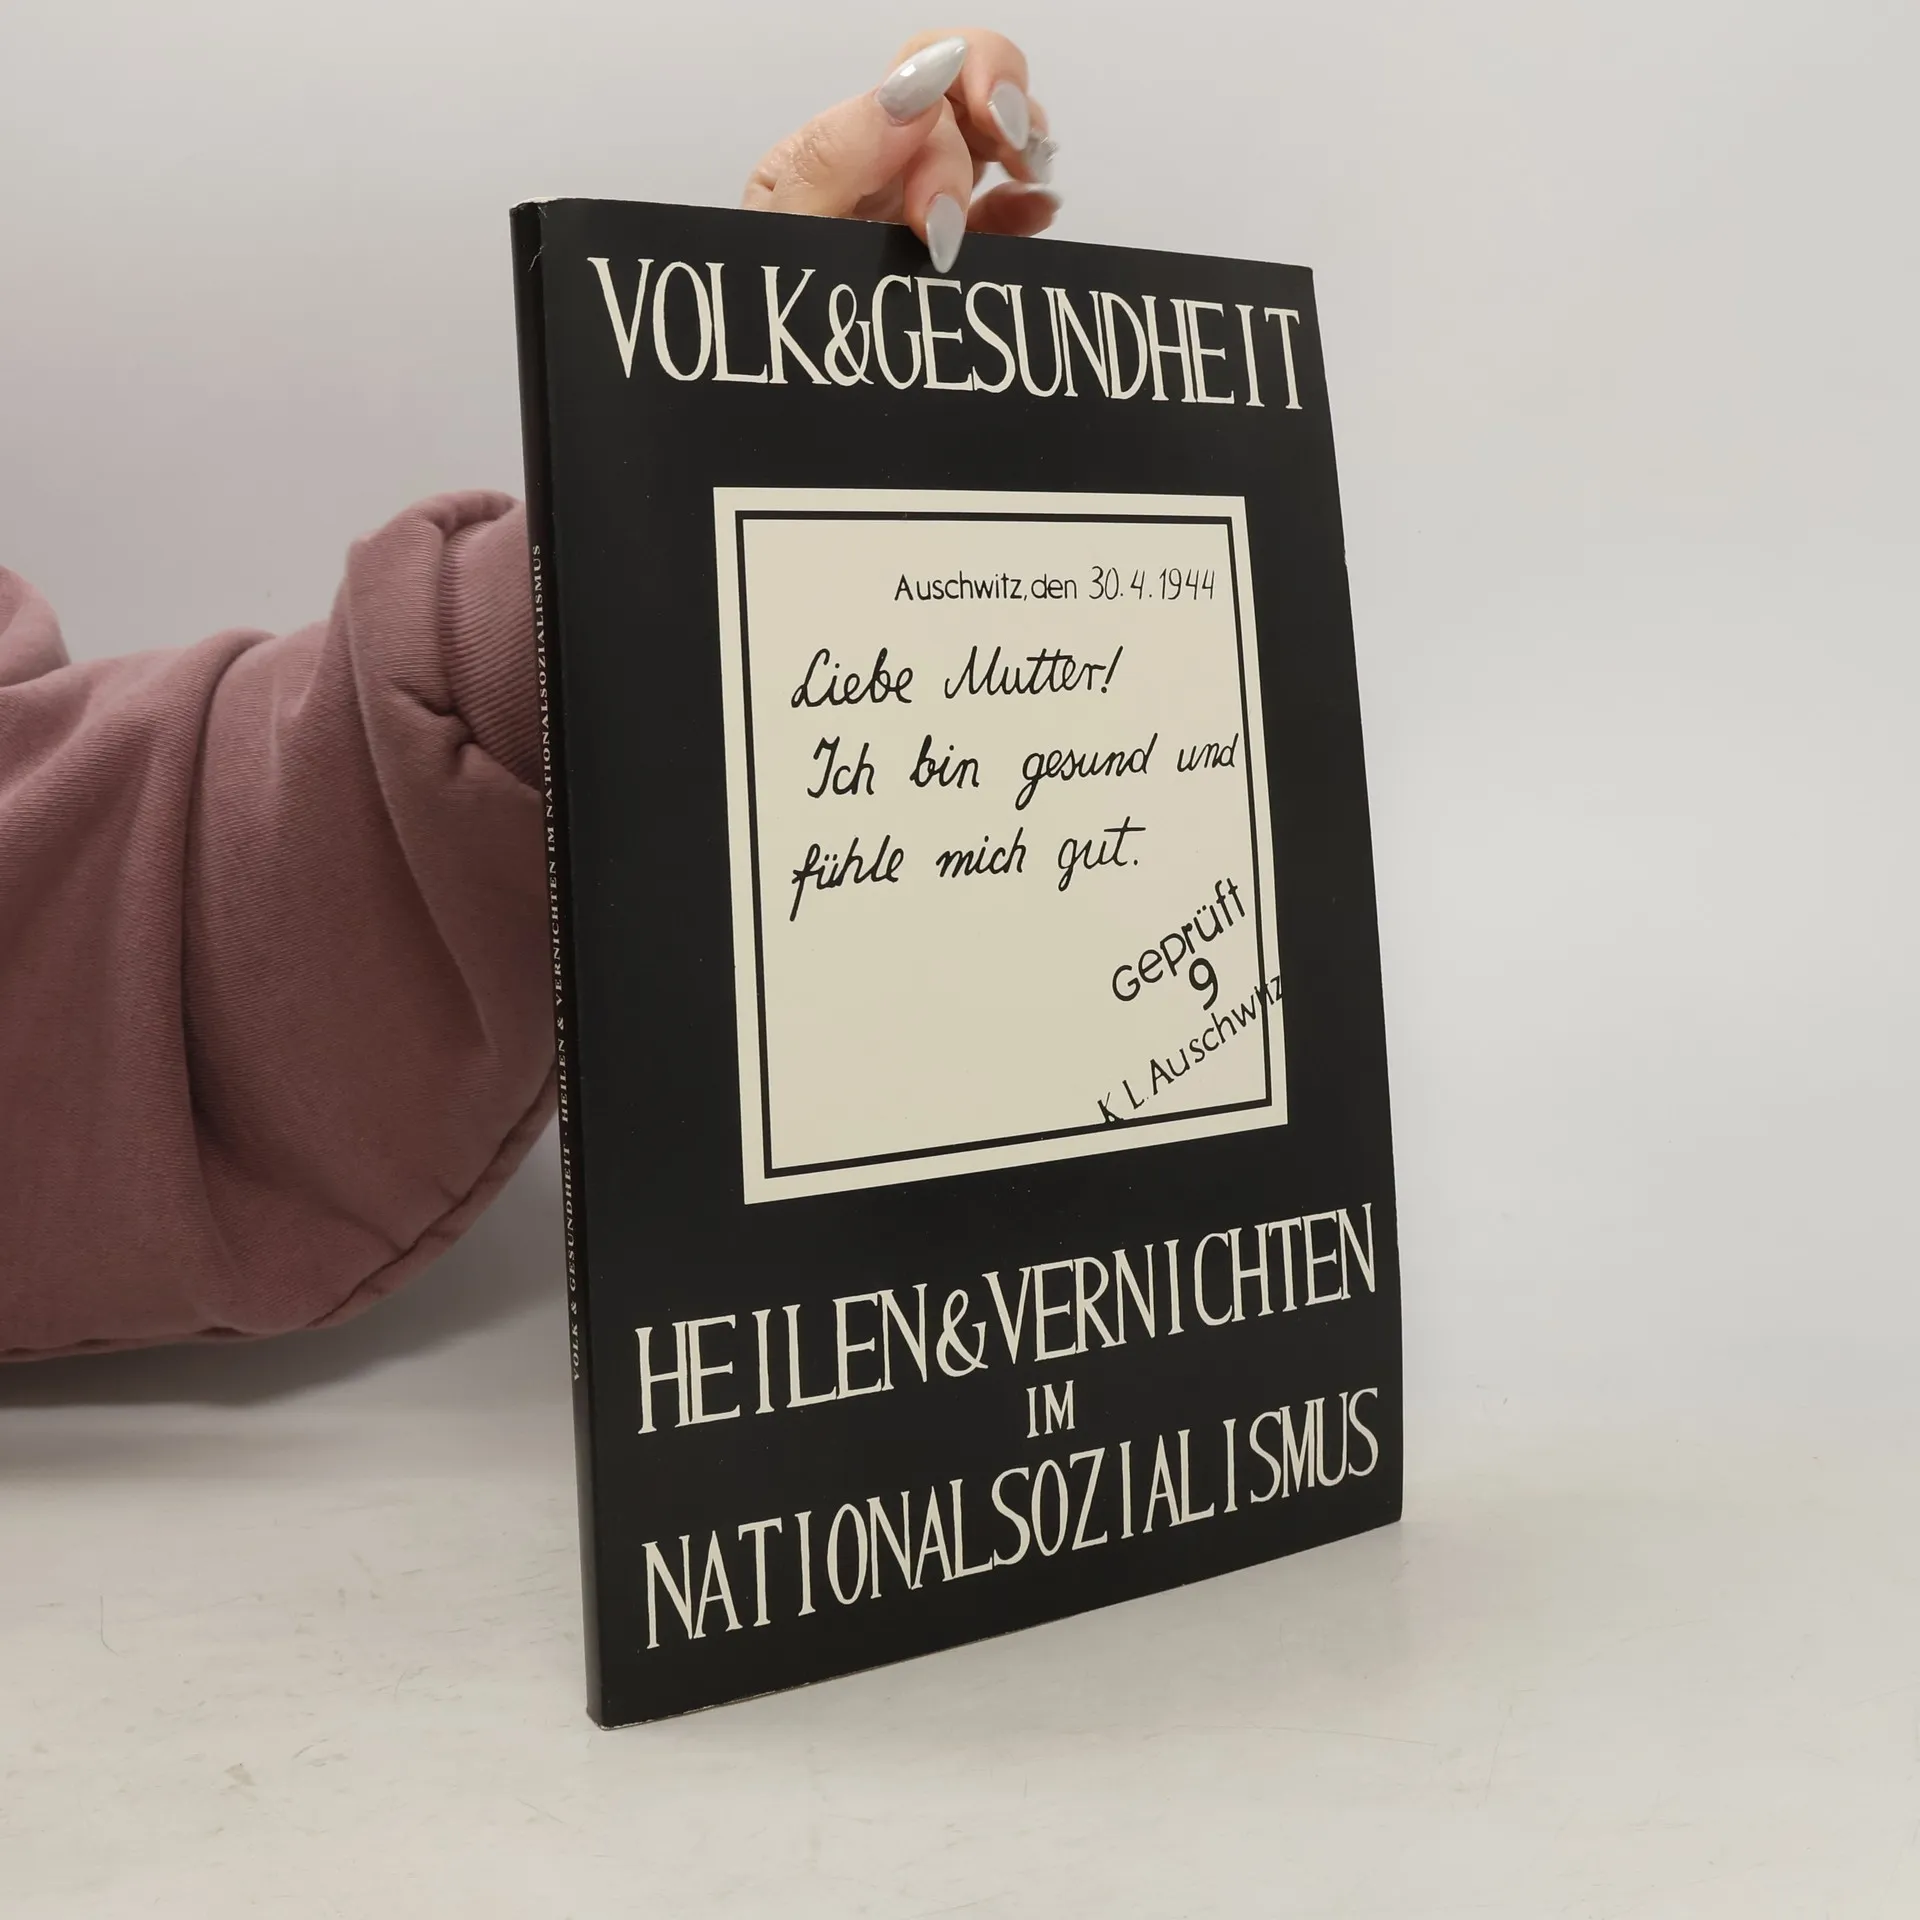 VOLK&GESUNDHEIT
Auschwitz, den 30.4.1944
Liebe Mutter!
Ich bin gesund und
fühle mich gut.
Geprüft
9
K L. Auschwitz
HEILEN&VERNICHTEN
IM
NATIONALSOZIALISMUS
VOLK & GESUNDHEIT · HEILEN & VERNICHTEN IM NATIONALSOZIALISMUS